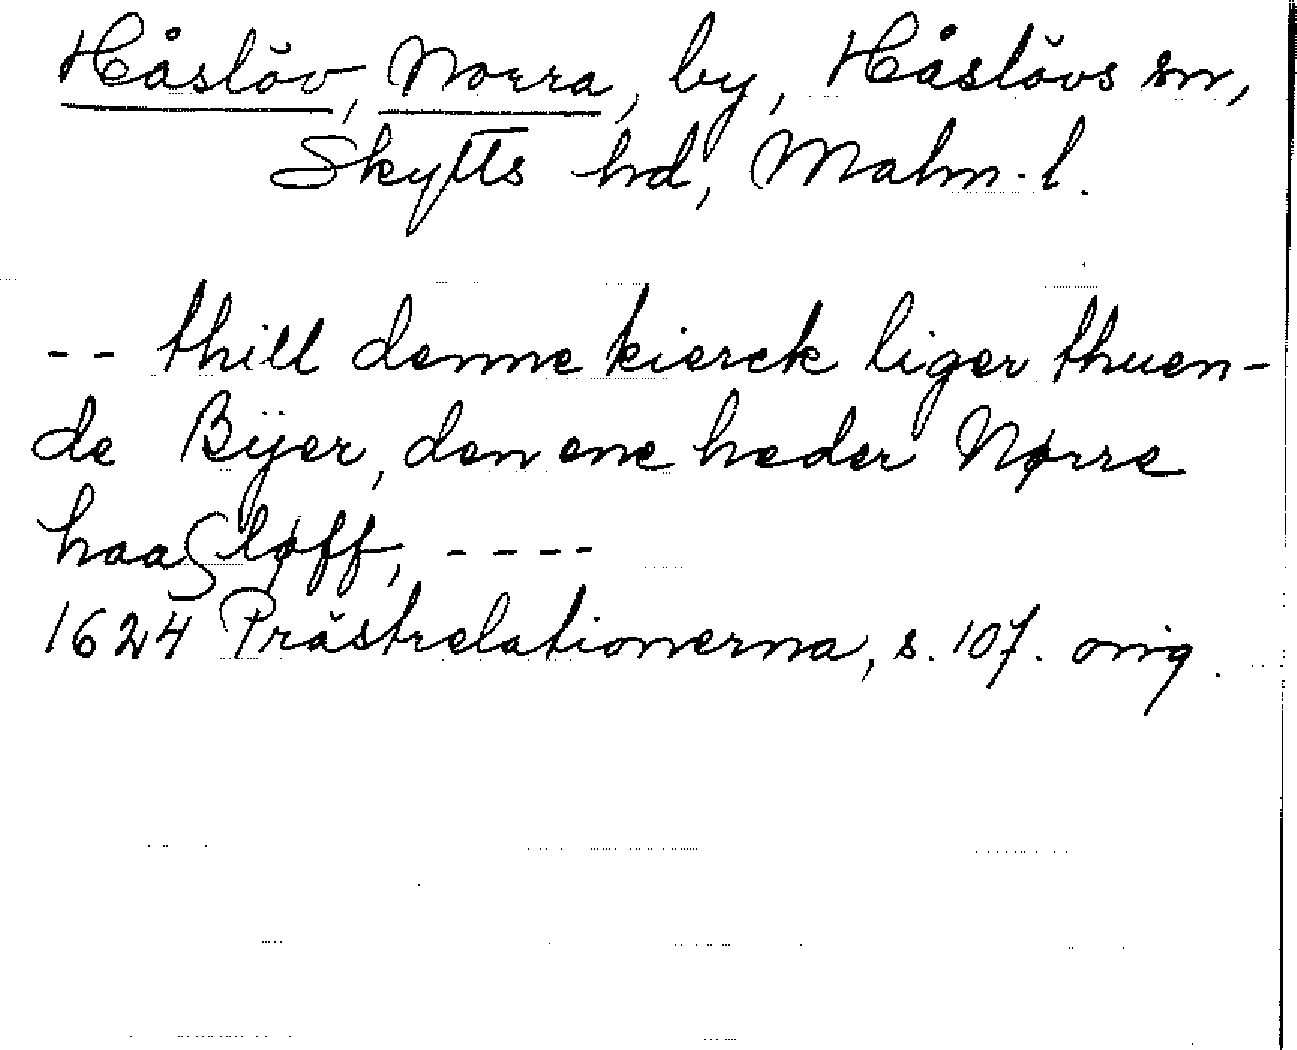 Håslöv, Norra, by, Håslövs sn,
Skytts hd, Malm. l.
-- thill denne kierck liger thuen-
de Bÿer, den ene heder Nørre
haaSløff, ----
1624 Prästrelationerna, s. 107. orig.